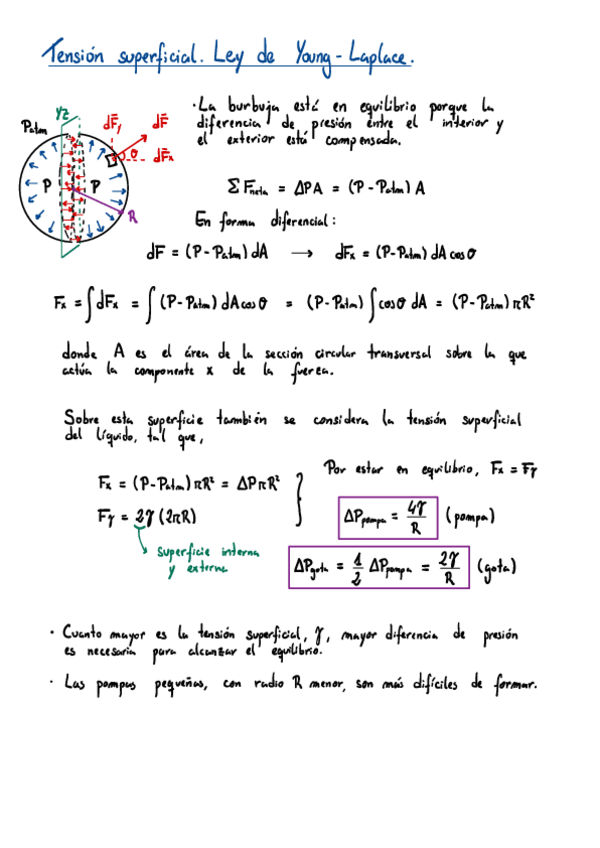 Tensión superficial. Ley de Young-Laplace.
· La burbuja está en equilibrio porque la
diferencia de presión entre el interior y
el exterior está compensada.
YZ
Patm
dF⃗y
dF⃗
θ
dF⃗x
P
P
R
ΣFneta = ΔPA = (P - Patm) A
En forma diferencial:
dF = (P-Patm) dA → dFx = (P-Patm) dA cosθ
Fx = ∫dFx = ∫(P-Patm) dA cosθ = (P-Patm) ∫cosθ dA = (P-Patm) πR²
donde A es el área de la sección circular transversal sobre la que
actúa la componente x de la fuerza.
Sobre esta superficie también se considera la tensión superficial
del líquido, tal que,
Fx = (P-Patm) πR² = ΔPπR²
Fγ = 2γ (2πR)
superficie interna
y externa
Por estar en equilibrio, Fx = Fγ
ΔPpompa = 4γ/R (pompa)
ΔPgota = 1/2 ΔPpompa = 2γ/R (gota)
· Cuanto mayor es la tensión superficial, γ, mayor diferencia de presión
es necesaria para alcanzar el equilibrio.
· Las pompas pequeñas, con radio R menor, son más difíciles de formar.